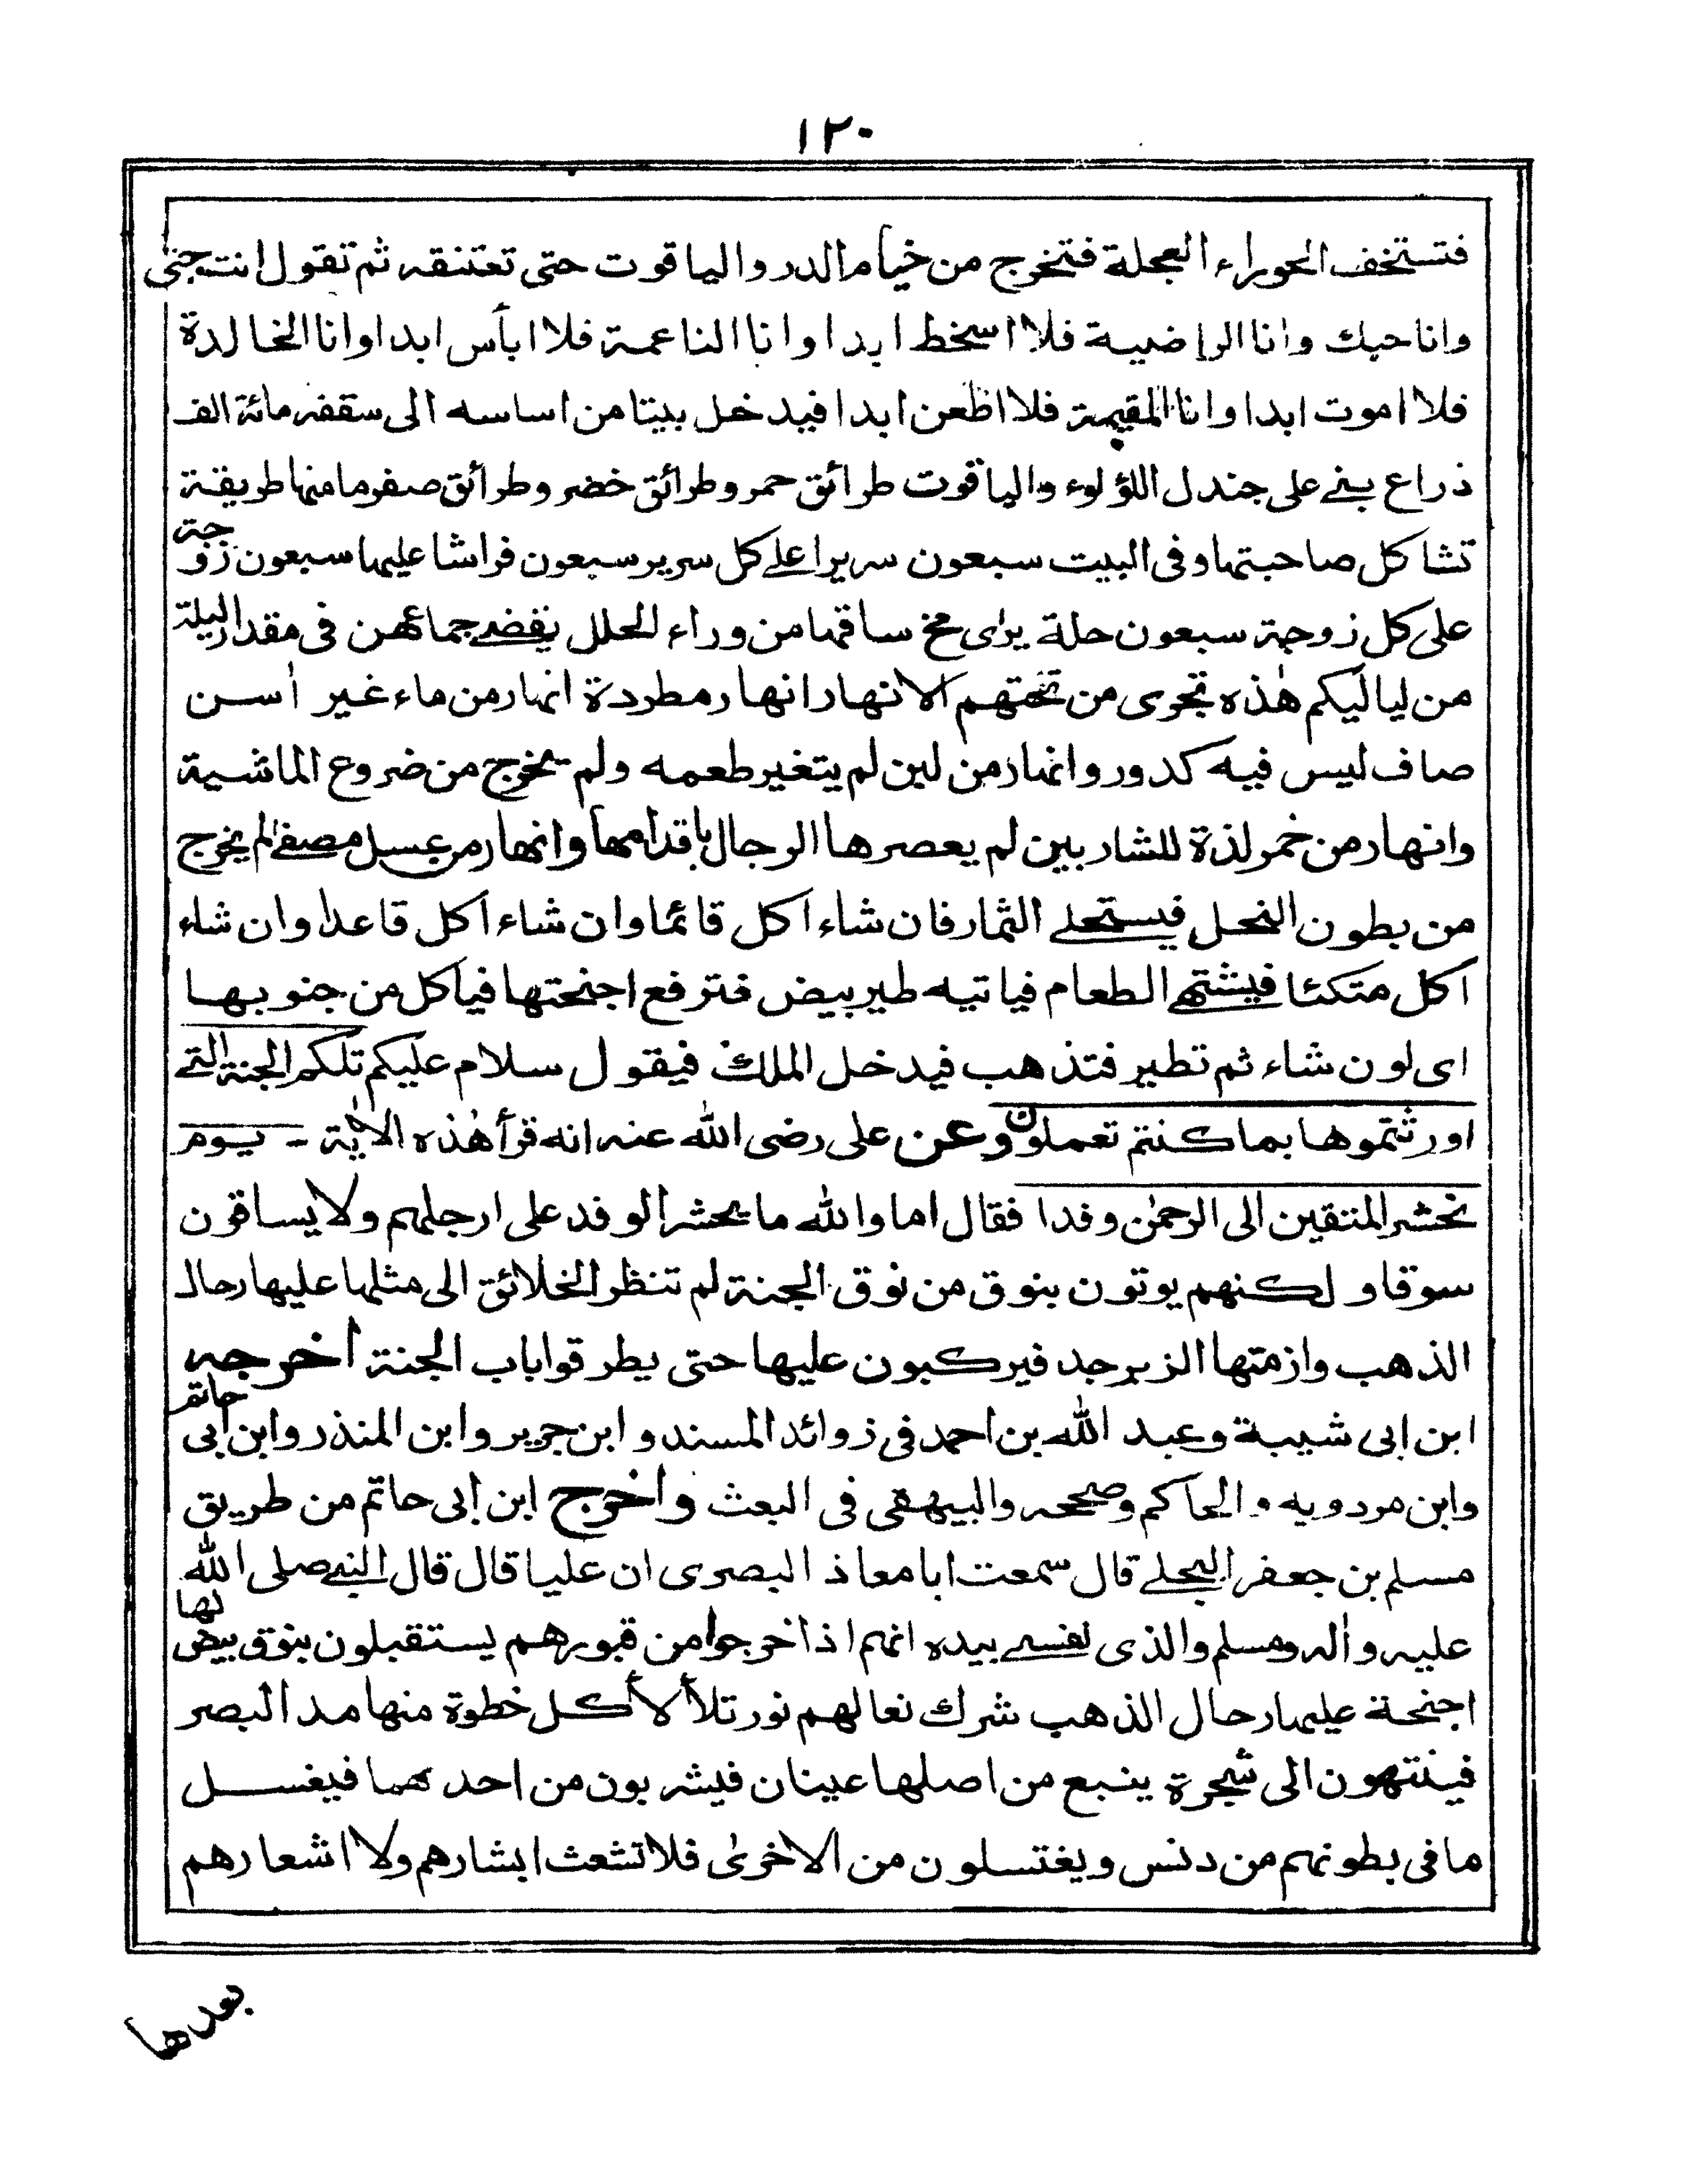 ١٢٠
فتستخف الحوراء العجلة فتخرج من خيام الدر والياقوت حتى تعتنقه ثم تقول انت حبى
وانا حبك وانا الراضية فلا اسخط ابدا وانا الناعمة فلا ابأس ابدا وانا الخالدة
فلا اموت ابدا وانا المقيمة فلا اظعن ابدا فيدخل بيتا من اساسه الى سقفه مائة الف
ذراع بنى على جندل اللؤلوء والياقوت طرائق حمر وطرائق خضر وطرائق صفر ما منها طريقة
تشاكل صاحبتها وفى البيت سبعون سريرا على كل سرير سبعون فراشا عليها سبعون زوجة
على كل زوجة سبعون حلة يرى مخ ساقها من وراء الحلل يقضى جماعهن فى مقدار ليلة
من لياليكم هذه تجرى من تحتهم الانهار انهار مطردة انهار من ماء غير اسن
صاف ليس فيه كدور وانهار من لبن لم يتغير طعمه ولم يخرج من ضروع الماشية
وانهار من خمر لذة للشاربين لم يعصرها الرجال باقدامها وانهار من عسل مصفى لم يخرج
من بطون النحل فيستحلى الثمار فان شاء اكل قائما وان شاء اكل قاعدا وان شاء
اكل متكئا فيشتهى الطعام فياتيه طير بيض فترفع اجنحتها فياكل من جنوبها
اى لون شاء ثم تطير فتذهب فيدخل الملك فيقول سلام عليكم تلكم الجنة التى
اورثتموها بما كنتم تعملون وعن على رضى الله عنه انه قرأ هذه الاية - يوم
نحشر المتقين الى الرحمن وفدا فقال اما والله ما يحشر الوفد على ارجلهم ولا يساقون
سوقا ولكنهم يوتون بنوق من نوق الجنة لم تنظر الخلائق الى مثلها عليها رحال
الذهب وازمتها الزبرجد فيركبون عليها حتى يطرقوا باب الجنة اخرجه
ابن ابى شيبة وعبد الله بن احمد فى زوائد المسند و ابن جرير وابن المنذر وابن ابى حاتم
وابن مردويه والحاكم وصححه والبيهقى فى البعث واخرج ابن ابى حاتم من طريق
مسلم بن جعفر البجلى قال سمعت ابا معاذ البصرى ان عليا قال قال النبى صلى الله
عليه واله وسلم والذى نفسى بيده انهم اذا خرجوا من قبورهم يستقبلون بنوق بيض لها
اجنحة عليها رحال الذهب شرك نعالهم نور تلألأ كل خطوة منها مد البصر
فينتهون الى شجرة ينبع من اصلها عينان فيشربون من احدهما فيغسل
ما فى بطونهم من دنس ويغتسلون من الاخرى فلا تشعث ابشارهم ولا اشعارهم
بعدها